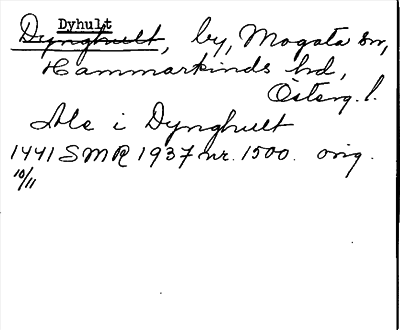 Dyhult
Dynghult, by, Mogata sn,
Hammarkinds hd,
Österg. l.
Ale i Dynghult
1441 SMR 1937 nr. 1500. orig.
10/11